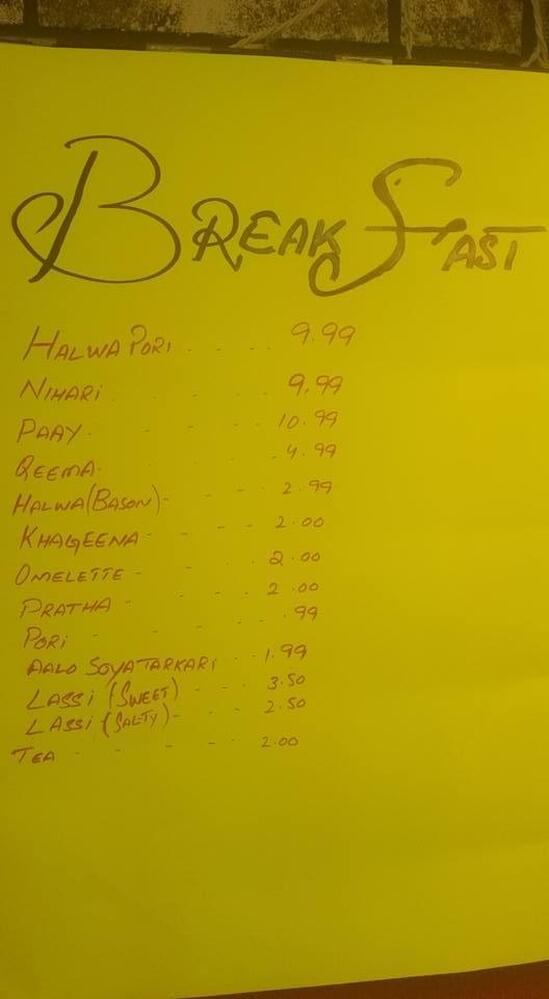 BREAKFAST
HALWA PORI . . . . 9.99
NIHARI . . . . 9.99
PAAY . - - . 10.99
QEEMA . . 4.99
HALWA (BASON) - - - . 2.99
KHAGEENA - - - . 2.00
OMELETTE - - - . 2.00
PRATHA - - - . 2.00
PORI - - - . .99
AALO SOYATARKARI - - 1.99
LASSI (SWEET) - - - 3.50
LASSI (SALTY) - - - 2.50
TEA - - - - - 2.00